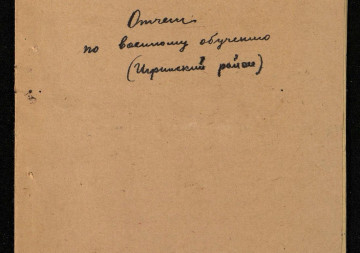 Отчет
по военному обучению
(Игринский район)